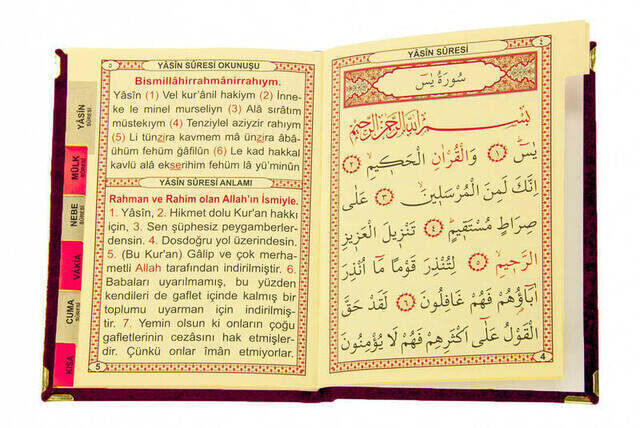 YÂSİN
SÛRESİ
MÜLK
SÛRESİ
NEBE
SÛRESİ
VÂKIA
CUMA
SÛRESİ
KISA
٥
YÂSÎN SÛRESİ OKUNUŞU
Bismillâhirrahmânirrahıym.
Yâsîn (1) Vel kur'ânil hakiym (2) İnne-
ke le minel murseliyn (3) Alâ sırâtım
müstekıym (4) Tenziylel aziyzir rahıym
(5) Li tünzira kavmem mâ ünzira âbâ-
ühüm fehüm gâfilûn (6) Le kad hakkal
kavlü alâ ekserihim fehüm lâ yü'minûn
YÂSÎN SÛRESİ ANLAMI
Rahman ve Rahim olan Allah'ın İsmiyle.
1. Yâsîn, 2. Hikmet dolu Kur'an hakkı
için, 3. Sen şüphesiz peygamberler-
densin. 4. Dosdoğru yol üzerindesin.
5. (Bu Kur'an) Gâlip ve çok merha-
metli Allah tarafından indirilmiştir. 6.
Babaları uyarılmamış, bu yüzden
kendileri de gaflet içinde kalmış bir
toplumu uyarman için indirilmiş-
tir. 7. Yemin olsun ki onların çoğu
gafletlerinin cezasını hak etmişler-
dir. Çünkü onlar îmân etmiyorlar.
5
YÂSÎN SÛRESİ
٤
سُورَةُ يٰسٓ
بِسْمِ اللّٰهِ الرَّحْمٰنِ الرَّحِيمِ
يٰسٓ ﴿١﴾ وَالْقُرْاٰنِ الْحَكِيمِ ﴿٢﴾
اِنَّكَ لَمِنَ الْمُرْسَلِينَ ﴿٣﴾ عَلٰى
صِرَاطٍ مُسْتَقِيمٍ ﴿٤﴾ تَنْزِيلَ الْعَزِيزِ
الرَّحِيمِ ﴿٥﴾ لِتُنْذِرَ قَوْمًا مَٓا اُنْذِرَ
اٰبَٓاؤُهُمْ فَهُمْ غَافِلُونَ ﴿٦﴾ لَقَدْ حَقَّ
الْقَوْلُ عَلٰٓى اَكْثَرِهِمْ فَهُمْ لَا يُؤْمِنُونَ
4